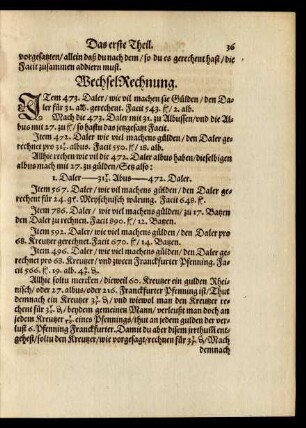 Das erste Theil. 36
vorgesatzten/ allein daß du nach dem/ so du es gerechent hast/ die
Facit zusammen addiern must.
Wechsel Rechnung.
ITem 473. Daler/ wie vil machen sie Gülden/ den Da-
ler für 31. alb. gerechent. Facit 543. ff/ 2. alb.
Mach die 473. Daler mit 31. zu Albussen/ und die Al-
bus mit 27. zu ff/ so hastu das jetzgesatzt Facit.
Item 472. Daler wie viel machens gülden/ den Daler ge-
rechnet pro 31½. albus. Facit 550. ff/ 18. alb.
Allhie rechen wie vil die 472. Daler albus haben/ dieselbigen
albus mach mit 27. zu gülden/ Setz also:
1. Daler——31½. Abus——472. Daler.
Item 567. Daler/ wie viel machens gülden/ den Daler ge-
rechent für 24. gr. Meychsnisch wärung. Facit 648. ff.
Item 786. Daler/ wie viel machens gülden/ zu 17. Batzen
den Daler zu rechnen. Facit 890. ff/ 12. Batzen.
Item 592. Daler/ wie viel machens gülden/ den Daler pro
68. Kreutzer gerechnet. Facit 670. ff/ 14. Batzen.
Item 496. Daler/ wie viel machens gülden/ den Daler ge-
rechnet pro 68. Kreutzer/ und zween Franckfurter Pfenning. Fa-
cit 566. ff. 19. alb. 4
Allhie soltu mercken/ dieweil 60. Kreutzer ein gulden Rhei-
nisch/ oder 27. albus/ oder 216. Franckfurter Pfennung ist/ Thut
demnach ein Kreutzer 3 und wiewol man den Kreutzer re-
chent für 3 beydem gemeinen Mann/ verleußt man doch an
jedem Kreutzer eines Pfennings/ thut an jedem gulden der ver-
lust 6. Pfenning Franckfurter. Damit du aber disem irrthum̃ ent-
gehest/ soltu den Kreutzer/ wie vorgesagt/ rechnen für 3 Mach
demnach